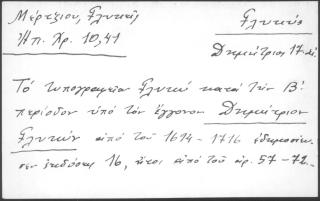 Μέρτζιου, Γλυκεῖς
Ἠπ. Χρ. 10, 41
Γλυκύς
Δημήτριος 17 αἰ.
Τό τυπογραφεῖον Γλυκύ κατά τήν Β΄
περίοδον ὑπό τόν ἔγγονον Δημήτριον
Γλυκύν ἀπό τοῦ 1694 - 1716 ἐδημοσίευ-
σεν ἐκδόσεις 16, ἤτοι ἀπό τοῦ ἀρ. 57 - 72.-